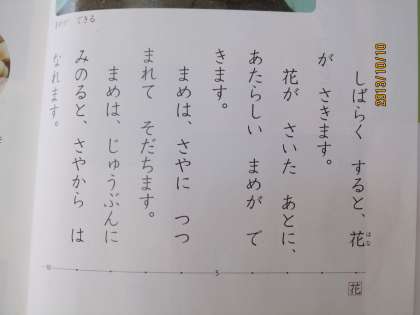 できる
しばらく すると、花
が さきます。
花が さいた あとに、
あたらしい まめが で
きます。
まめは、さやに つつ
まれて そだちます。
まめは、じゅうぶんに
みのると、さやから は
なれます。
はな
花
5
10
2013/10/10